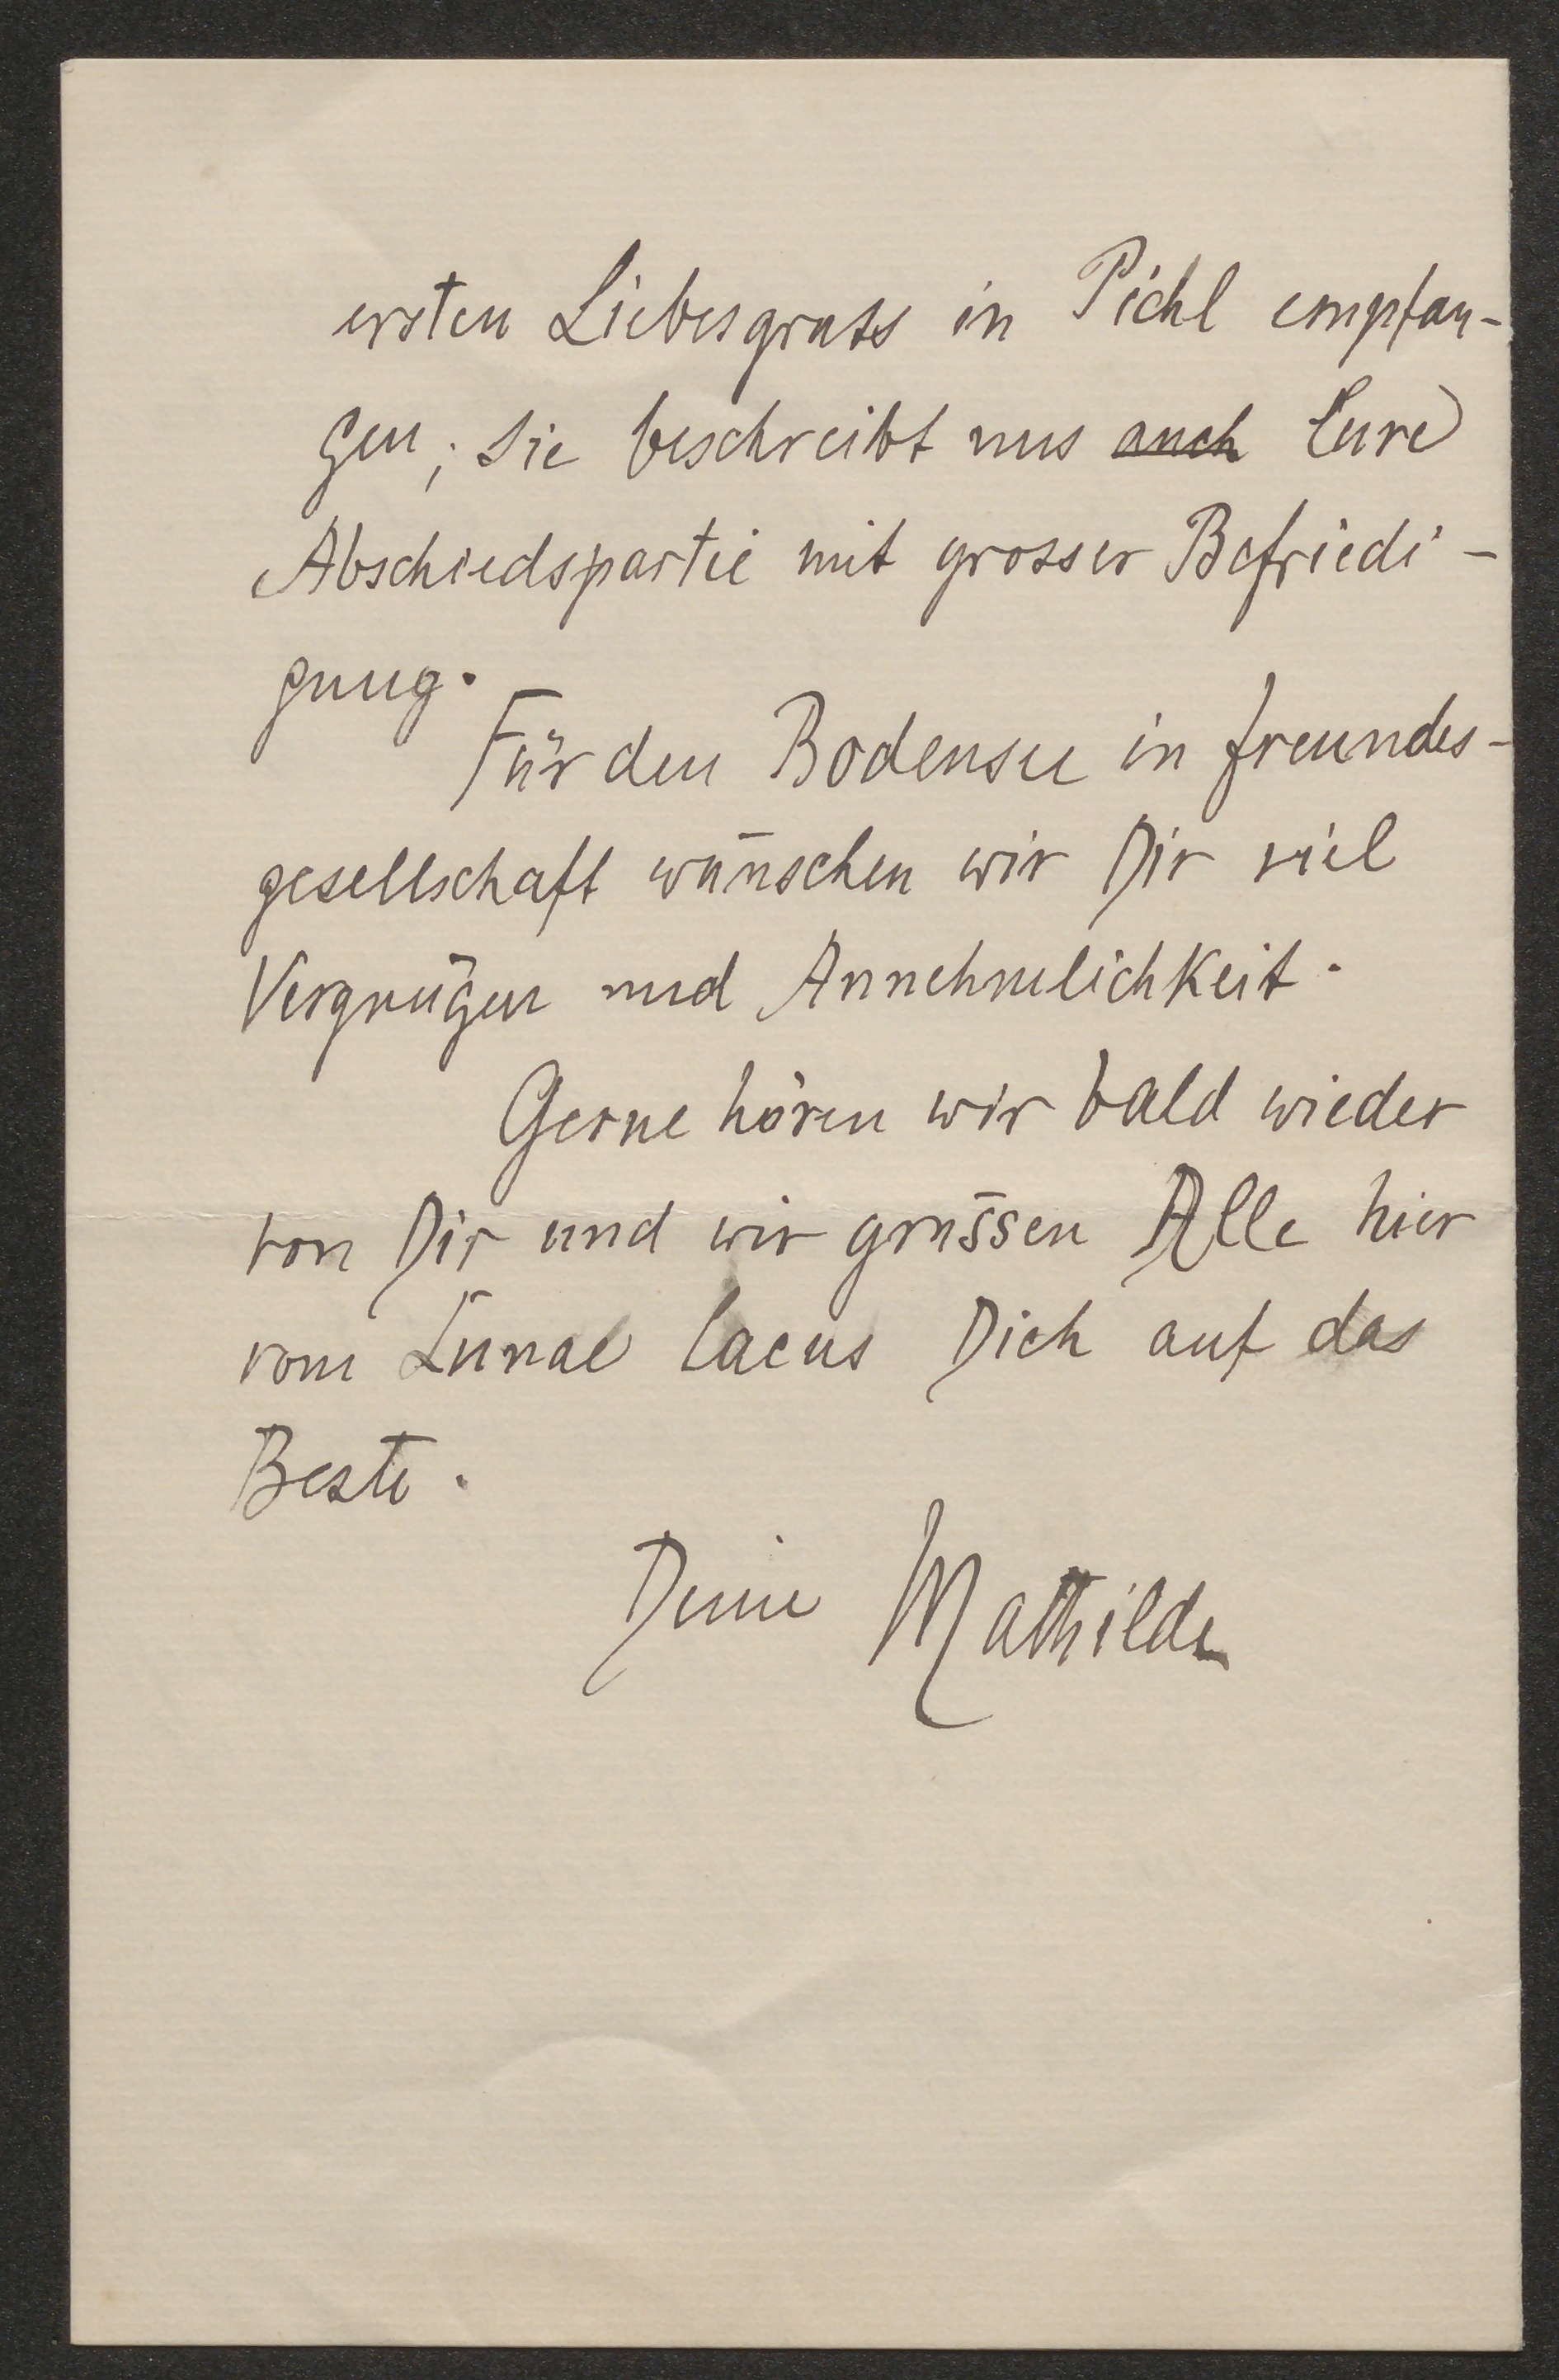 ersten Liebesgruss in Pichl empfan-
gen; sie beschreibt uns auch Eure
Abschiedspartie mit grosser Befriedi-
gung.
Für den Bodensee in freundes-
gesellschaft wünschen wir Dir viel
Vergnügen und Annehmlichkeit.
Gerne hören wir bald wieder
von Dir und wir grüssen Alle hier
vom Lunae lacus Dich auf das
Beste.
Deine Mathilde